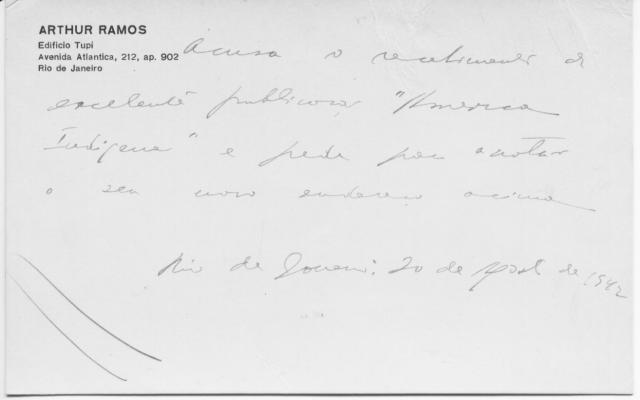 ARTHUR RAMOS
Edificio Tupi
Avenida Atlantica, 212, ap. 902
Rio de Janeiro
Acusa o recebimento da
excelente publicação "America
Indigena" e pede para anotar
o seu novo endereço acima
Rio de Janeiro: 20 de de 1942